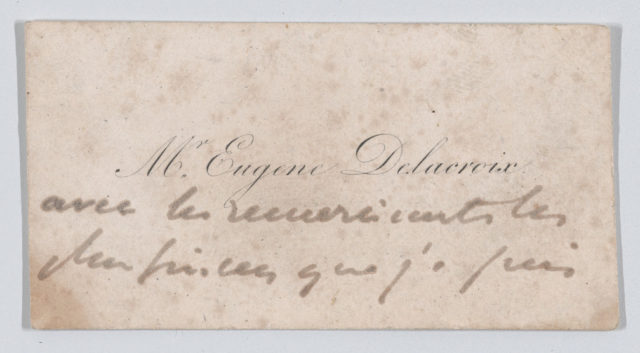 Mr. Eugene Delacroix
avec les remerciments les
plus sincères que je puis